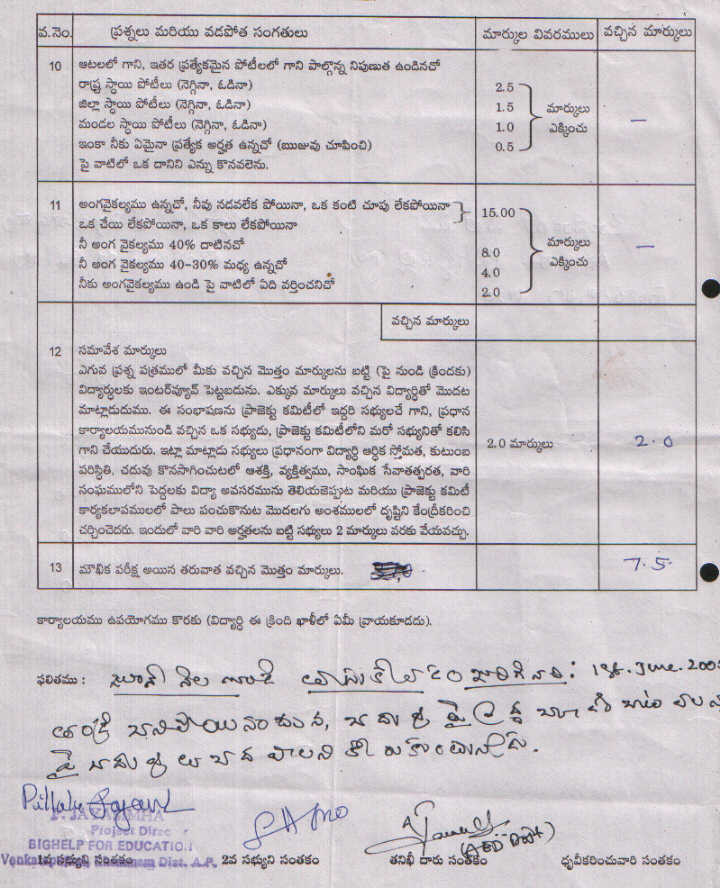 వ.నెం. ప్రశ్నలు మరియు వడపోత సంగతులు మార్కుల వివరములు వచ్చిన మార్కులు
10 ఆటలలో గాని, ఇతర ప్రత్యేకమైన పోటీలలో గాని పాల్గొన్న నిపుణుత ఉండినచో
రాష్ట్ర స్థాయి పోటీలు (నెగ్గినా, ఓడినా) 2.5
జిల్లా స్థాయి పోటీలు (నెగ్గినా, ఓడినా) 1.5 మార్కులు
మండల స్థాయి పోటీలు (నెగ్గినా, ఓడినా) 1.0 ఎక్కించు —
ఇంకా నీకు ఏమైనా ప్రత్యేక అర్హత ఉన్నచో (ఋజువు చూపించి) 0.5
పై వాటిలో ఒక దానిని ఎన్ను కొనవలెను.
11 అంగవైకల్యము ఉన్నచో, నీవు నడవలేక పోయినా, ఒక కంటి చూపు లేకపోయినా 15.00
ఒక చేయి లేకపోయినా, ఒక కాలు లేకపోయినా
నీ అంగ వైకల్యము 40% దాటినచో 8.0 మార్కులు —
నీ అంగ వైకల్యము 40-30% మధ్య ఉన్నచో 4.0 ఎక్కించు
నీకు అంగవైకల్యము ఉండి పై వాటిలో ఏది వర్తించనిచో 2.0
వచ్చిన మార్కులు
12 సమావేశ మార్కులు
ఎగువ ప్రశ్న పత్రములో మీకు వచ్చిన మొత్తం మార్కులను బట్టి (పై నుండి క్రిందకు)
విద్యార్థులకు ఇంటర్‌వ్యూవ్ పెట్టబడును. ఎక్కువ మార్కులు వచ్చిన విద్యార్థితో మొదట
మాట్లాడుదుము. ఈ సంభాషణను ప్రాజెక్టు కమిటీలో ఇద్దరి సభ్యులచే గాని, ప్రధాన
కార్యాలయమునుండి వచ్చిన ఒక సభ్యుడు, ప్రాజెక్టు కమిటీలోని మరో సభ్యునితో కలిసి
గాని చేయుదురు. ఇట్లా మాట్లాడు సభ్యులు ప్రధానంగా విద్యార్థి ఆర్థిక స్తోమత, కుటుంబ 2.0 మార్కులు 2.0
పరిస్థితి, చదువు కొనసాగించుటలో ఆశక్తి, వ్యక్తిత్వము, సాంఘిక సేవాతత్పరత, వారి
సంఘములోని పెద్దలకు విద్యా అవసరమును తెలియజెప్పుట మరియు ప్రాజెక్టు కమిటీ
కార్యకలాపములలో పాలు పంచుకొనుట మొదలగు అంశములలో దృష్టిని కేంద్రీకరించి
చర్చించెదరు. ఇందులో వారి వారి అర్హతలను బట్టి సభ్యులు 2 మార్కులు వరకు వేయవచ్చు.
13 మౌఖిక పరీక్ష అయిన తరువాత వచ్చిన మొత్తం మార్కులు. 7.5
కార్యాలయము ఉపయోగము కొరకు (విద్యార్థి ఈ క్రింది ఖాళీలో ఏమీ వ్రాయకూడదు).
ఫలితము : జూన్ నెల నుండి
తండ్రి చనిపోయినందున,
పై
P. JAYASIMHA
Project Direc
BIGHELP FOR EDUCATION
Dist. A.P.
1వ సభ్యుని సంతకం 2వ సభ్యుని సంతకం తనిఖీ దారు సంతకం ధృవీకరించువారి సంతకం